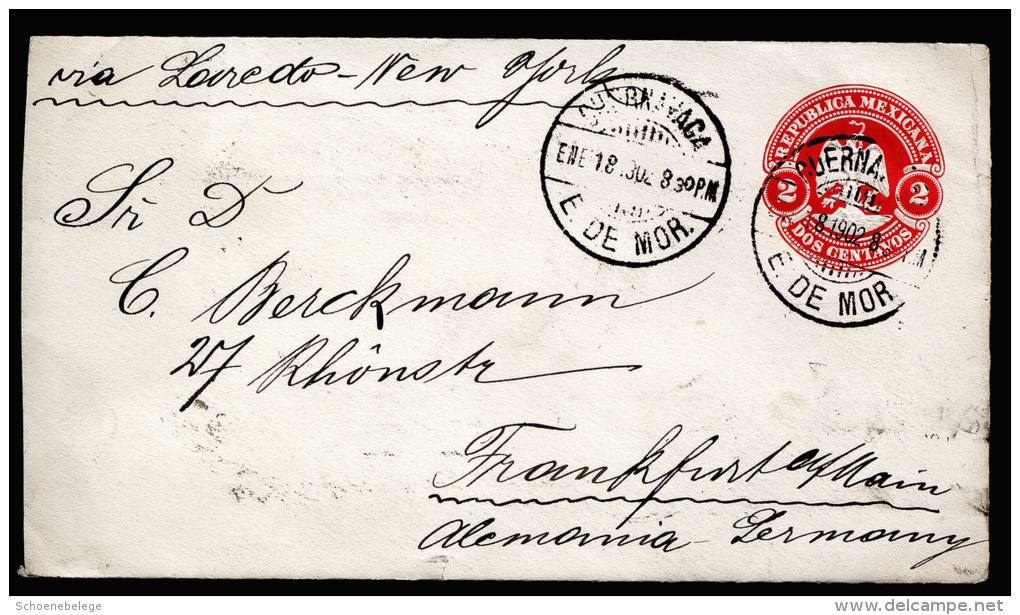 via Laredo - New York
REPUBLICA MEXICANA
2 2
DOS CENTAVOS.
CUERNAVACA
ENE 18 1902 8 30 PM
E. DE MOR.
CUERNA
8 1902 8 PM
E. DE MOR
Sr. D
C. Berckmann
27 Rhönstr
Frankfurt a/Main
Alemania - Germany
Schoenebelege
delcampe.net